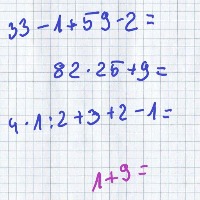 33 - 1 + 59 - 2 =
82 · 25 + 9 =
4 · 1 : 2 + 3 + 2 - 1 =
1 + 9 =